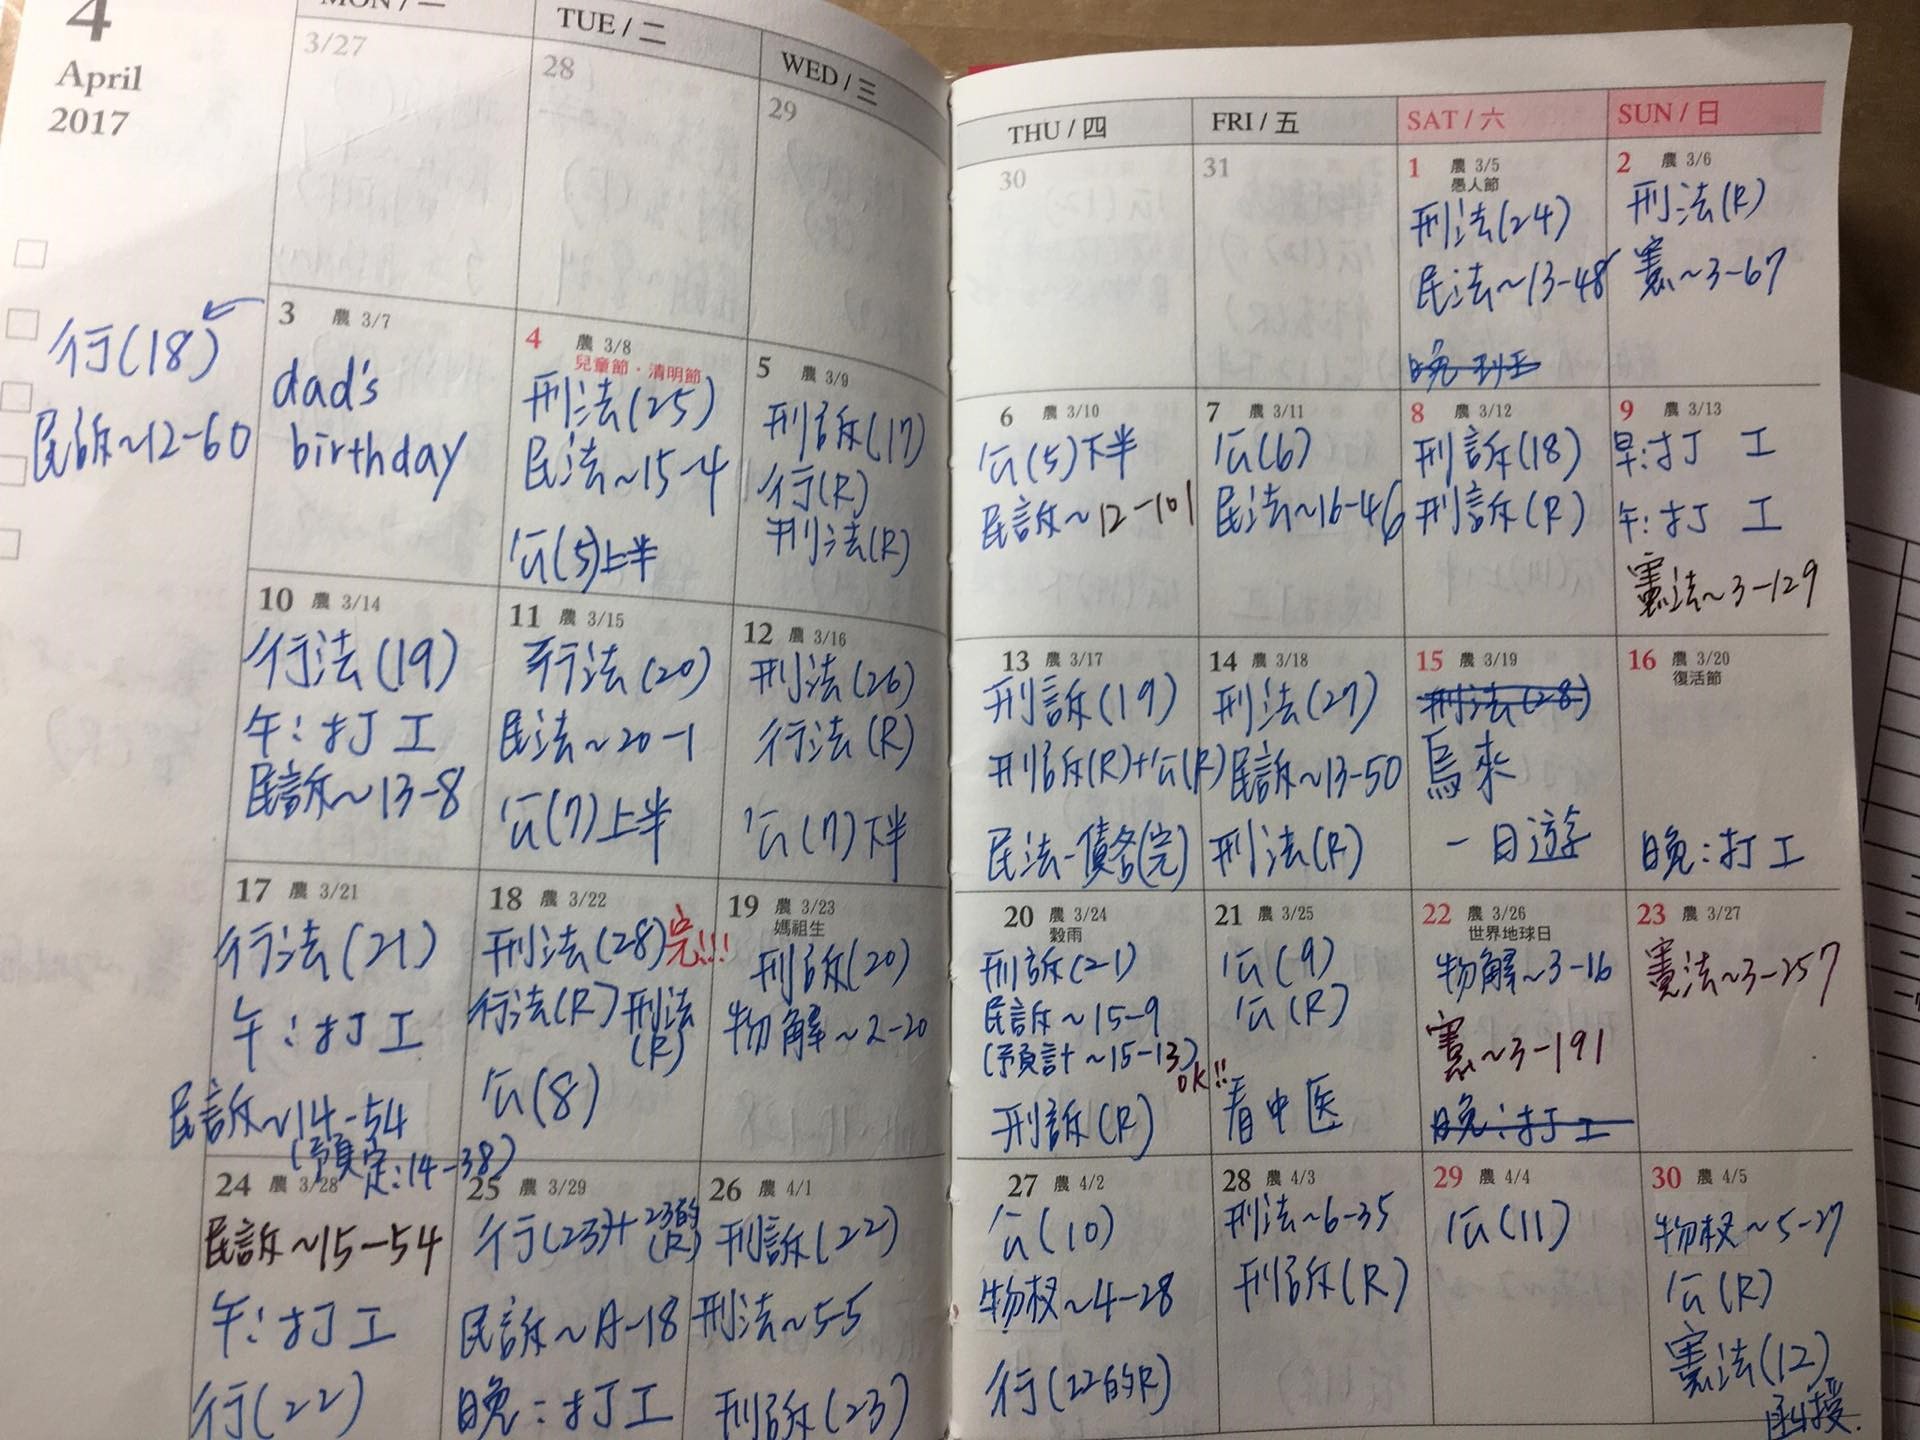 4
April
2017
MON / 一
TUE / 二
WED / 三
THU / 四
FRI / 五
SAT / 六
SUN / 日
3/27
28
29
30
31
1 農 3/5
愚人節
刑法(24)
民法~13-48
晚
2 農 3/6
刑法(R)
憲~3-67
行(18)
民訴~12-60
3 農 3/7
dad's
birthday
4 農 3/8
兒童節・清明節
刑法(25)
民法~15-4
公(5)上半
5 農 3/9
刑訴(17)
行(R)
刑法(R)
6 農 3/10
公(5)下半
民訴~12-101
7 農 3/11
公(6)
民法~16-46
8 農 3/12
刑訴(18)
刑訴(R)
9 農 3/13
早:打工
午:打工
憲法~3-129
10 農 3/14
行法(19)
午:打工
民訴~13-8
11 農 3/15
行法(20)
民法~20-1
公(7)上半
12 農 3/16
刑法(26)
行法(R)
公(7)下半
13 農 3/17
刑訴(19)
刑訴(R)+公(R)
民法-債各(完)
14 農 3/18
刑法(27)
民訴~13-50
刑法(R)
15 農 3/19
刑法(28)
烏來
一日遊
16 農 3/20
復活節
晚:打工
17 農 3/21
行法(21)
午:打工
民訴~14-54
(預定:14-38)
18 農 3/22
刑法(28)完!!!
行法(R) 刑法
(R)
公(8)
19 農 3/23
媽祖生
刑訴(20)
物解~2-20
20 農 3/24
穀雨
刑訴(21)
民訴~15-9
(預計~15-13)
OK!!
刑訴(R)
21 農 3/25
公(9)
公(R)
看中医
22 農 3/26
世界地球日
物解~3-16
憲~3-191
晚:打工
23 農 3/27
憲法~3-257
24 農 3/28
民訴~15-54
午:打工
行(22)
25 農 3/29
行(23)+23的
(R)
民訴~A-18
晚:打工
26 農 4/1
刑訴(22)
刑法~5-5
刑訴(23)
27 農 4/2
公(10)
物权~4-28
行(22的R)
28 農 4/3
刑法~6-35
刑訴(R)
29 農 4/4
公(11)
30 農 4/5
物权~5-27
公(R)
憲法(12)
函授.